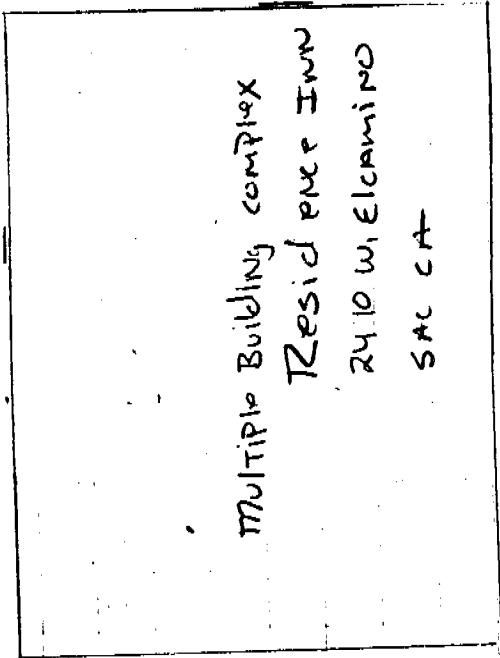 Multiple Building complex
Residence Inn
2410 W, Elcamino
SAC CA